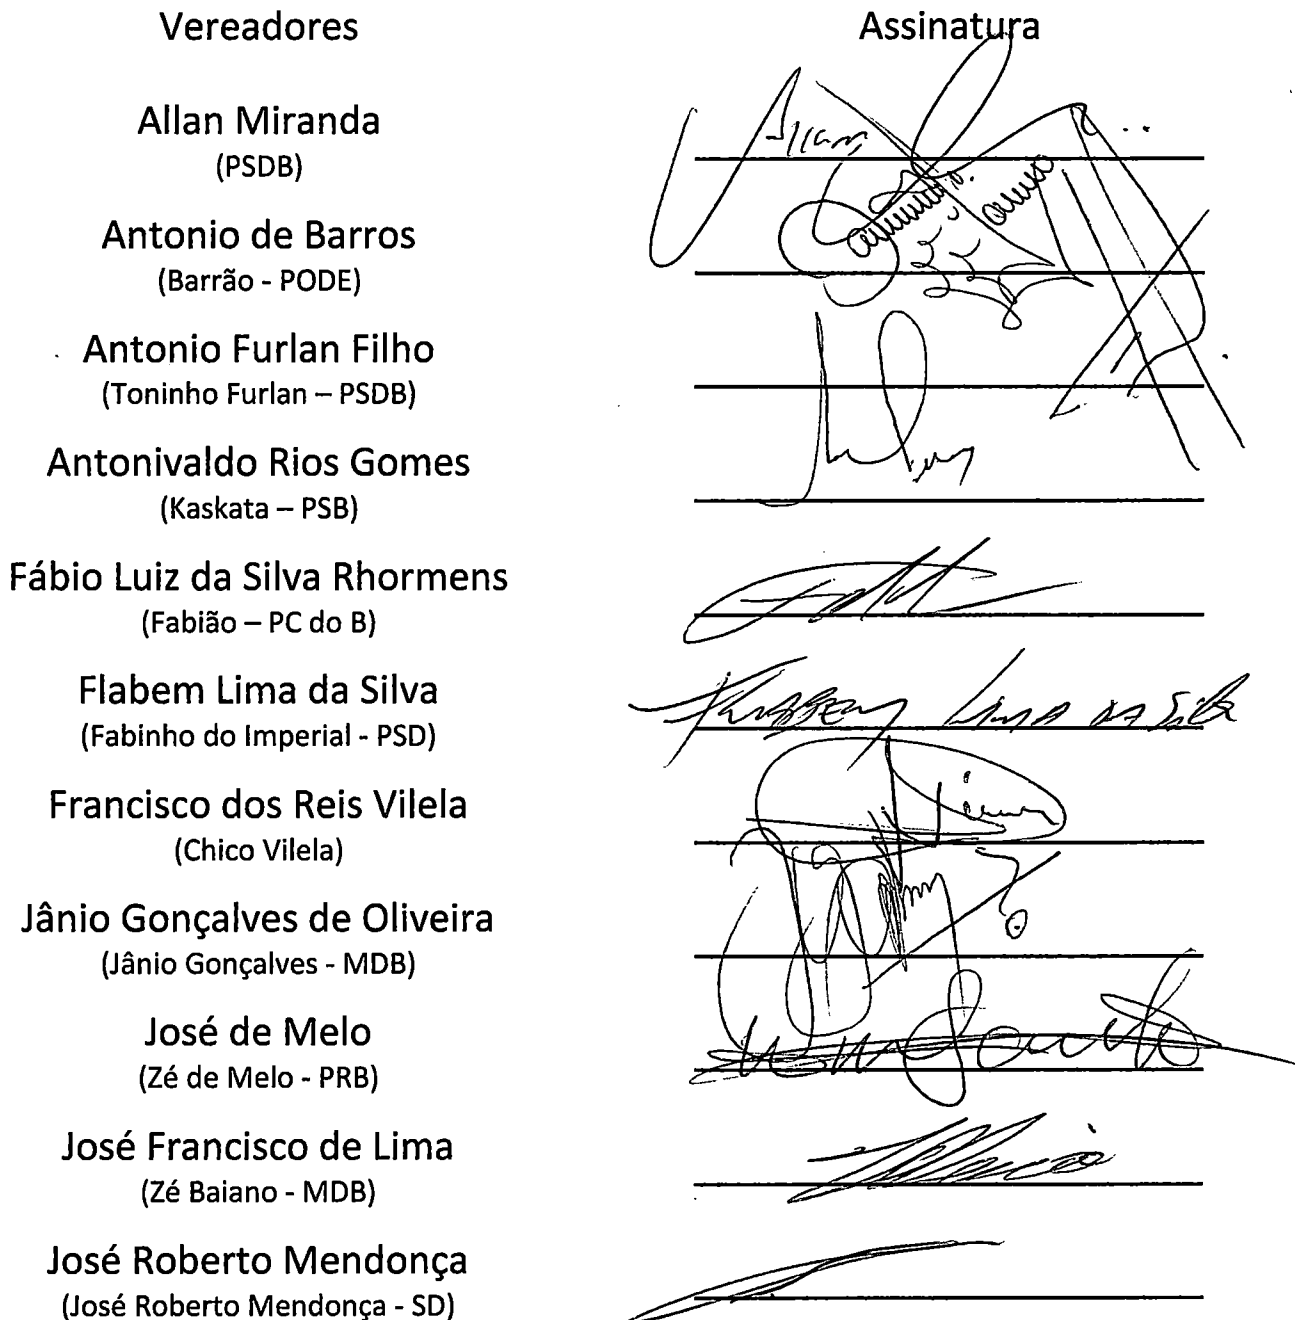 Vereadores Assinatura
Allan Miranda
(PSDB)
Allan
Antonio de Barros
(Barrão - PODE)
Antonio Furlan Filho
(Toninho Furlan – PSDB)
Antonivaldo Rios Gomes
(Kaskata – PSB)
Fábio Luiz da Silva Rhormens
(Fabião – PC do B)
Flabem Lima da Silva
(Fabinho do Imperial - PSD)
Flabem Lima da Silva
Francisco dos Reis Vilela
(Chico Vilela)
Jânio Gonçalves de Oliveira
(Jânio Gonçalves - MDB)
José de Melo
(Zé de Melo - PRB)
José Francisco de Lima
(Zé Baiano - MDB)
José Roberto Mendonça
(José Roberto Mendonça - SD)